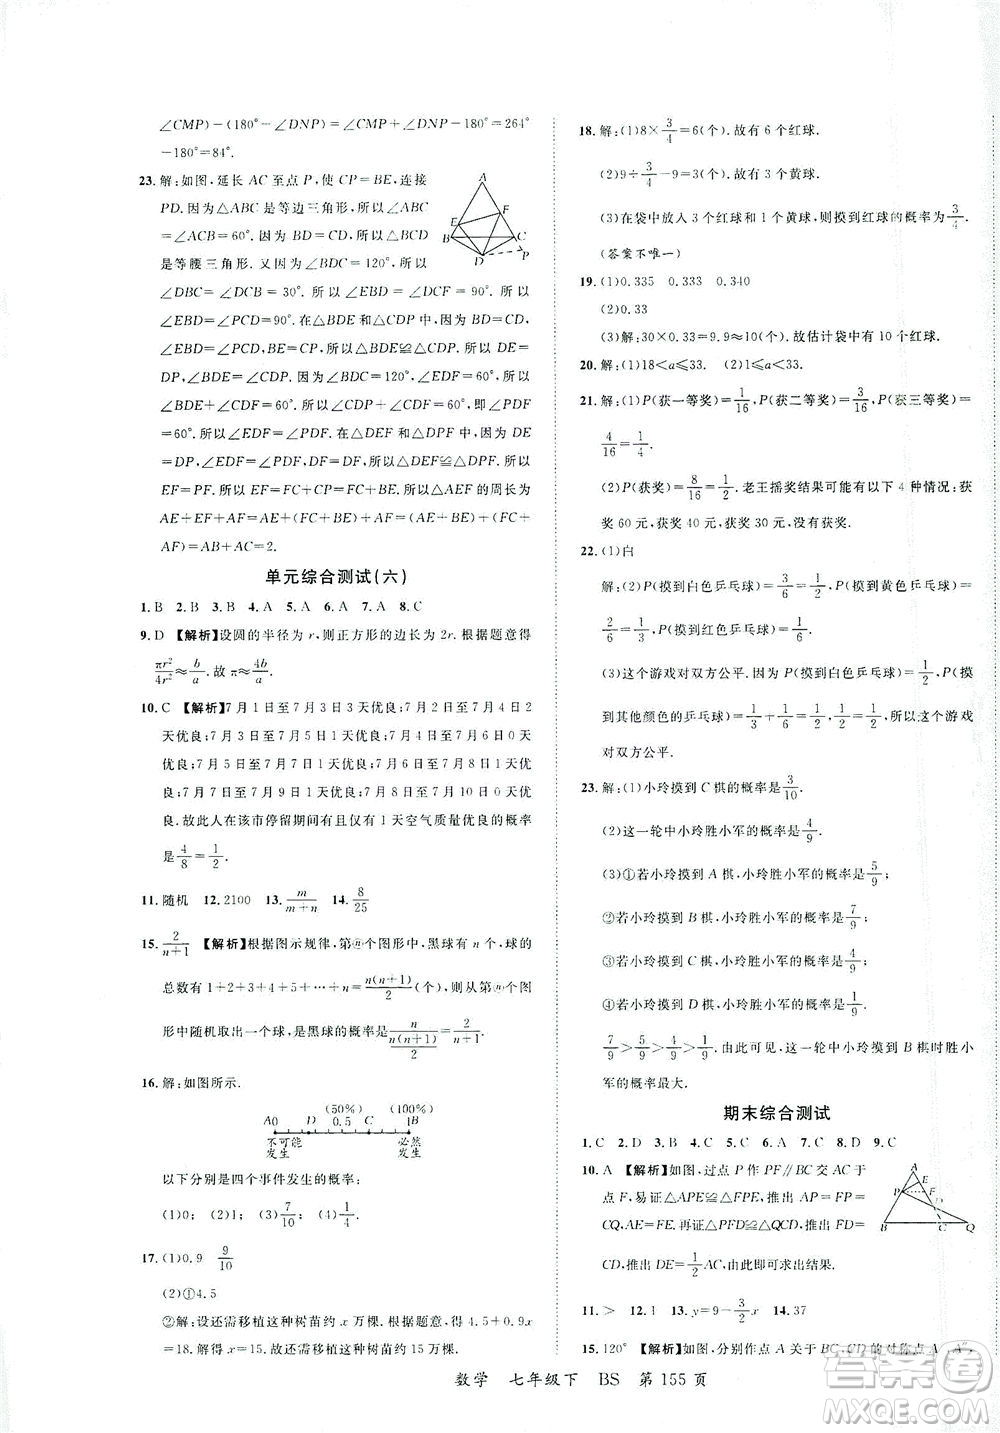 ∠CMP)-(180°-∠DNP)=∠CMP+∠DNP-180°=264°
-180°=84°.
23. 解:如图,延长 AC 至点 P,使 CP=BE,连接
PD. 因为△ABC 是等边三角形,所以∠ABC
=∠ACB=60°. 因为 BD=CD,所以△BDC
是等腰三角形. 又因为∠BDC=120°,所以
∠DBC=∠DCB=30°. 所以∠EBD=∠DCF
=∠DCP=90°. 所以在△BDE 和△CDP 中,
因为 BD=CD,∠EBD=∠DCP,BE=
CP,所以△BDE≌△CDP. 所以 DE=
DP,∠BDE=∠CDP. 因为∠BDC=120°,
∠EDF=60°,所以∠BDE+∠CDF=60°,即∠PDF
=60°. 所以∠EDF=∠PDF. 在△DEF 和△DPF 中,因为 DE
=DP,∠EDF=∠PDF,DF=DF,所以△DEF≌△DPF. 所以
EF=PF. 所以 EF=FC+CP=FC+BE. 所以△AEF 的周长为
AE+EF+AF=AE+BE+FC+AF=(AE+BE)+(FC+
AF)=AB+AC=2.
单元综合测试(六)
1. B 2. B 3. B 4. A 5. A 6. A 7. A 8. C
9. D 【解析】设圆的半径为 r,则正方形的边长为 2r. 根据题意得
πr²/4r²≈b/a. 故 π≈4b/a.
10. C 【解析】7 月 1 日至 7 月 3 日 3 天优良;7 月 2 日至 7 月 4 日 2
天优良;7 月 3 日至 7 月 5 日 1 天优良;7 月 4 日至 7 月 6 日 0 天
优良;7 月 5 日至 7 月 7 日 0 天优良;7 月 6 日至 7 月 8 日 1 天优
良;7 月 7 日至 7 月 9 日 1 天优良;7 月 8 日至 7 月 10 日 1 天优良.
故此人在该市停留期间有且仅有 1 天空气质量优良的概率
是 4/8=1/2.
11. 随机 12. 2100 13. m/(m+n) 14. 8/25
15. 2/(n+1) 【解析】根据图示规律,第 n 个图形中,黑球有 n 个,球的
总数有 1+2+3+4+5+…+n=n(n+1)/2(个),则从第 n 个图
形中随机取出一个球,是黑球的概率是 n/(n(n+1)/2)=2/(n+1).
16. 解:如图所示.
(50%) (100%)
A0 D 0.5 C B1
不可能 必然
发生 发生
以下分别是四个事件发生的概率:
(1)0; (2)1; (3)7/10; (4)1/4.
17. (1)0.9 9/10
(2)①4.5
②解:设还需移植这种树苗约 x 万棵. 根据题意,得 4.5+0.9x
=18. 解得 x=15. 故估计还需移植这种树苗约 15 万棵.
18. 解:(1)8×3/4=6(个). 故有 6 个红球.
(2)9÷3/4-9=3(个). 故有 3 个黄球.
(3)在袋中放入 3 个红球和 1 个黄球,则摸到红球的概率为 3/4.
(答案不唯一)
19. (1)0.335 0.333 0.340
(2)0.33
(3)解:30×0.33=9.9≈10(个). 故估计袋中应有 10 个红球.
20. 解:(1)18<a≤33. (2)1≤a≤33.
21. 解:(1)P(获一等奖)=1/16,P(获二等奖)=3/16,P(获三等奖)=
4/16=1/4.
(2)P(获奖)=8/16=1/2. 老王摇奖结果可能有以下 4 种情况:获
奖 60 元,获奖 40 元,获奖 30 元,没有获奖.
22. (1)白
解:(2)P(摸到白色乒乓球)=3/6=1/2,P(摸到黄色乒乓球)=
2/6=1/3,P(摸到红色乒乓球)=1/6.
(3)这个游戏对双方公平. 因为 P(摸到白色乒乓球)=1/2,P(摸
到其他颜色的乒乓球)=1/3+1/6=1/2,所以这个游戏
对双方公平.
23. 解:(1)小玲摸到 C 棋的概率是 3/10.
(2)这一轮中小玲胜小军的概率是 4/9.
(3)①若小玲摸到 A 棋,小玲胜小军的概率是 5/9;
②若小玲摸到 B 棋,小玲胜小军的概率是 7/9;
③若小玲摸到 C 棋,小玲胜小军的概率是 4/9;
④若小玲摸到 D 棋,小玲胜小军的概率是 1/9.
7/9>5/9>4/9>1/9. 由此可见,这一轮中小玲摸到 B 棋时胜小
军的概率最大.
期末综合测试
1. C 2. D 3. B 4. C 5. C 6. A 7. D 8. D 9. C
10. A 【解析】如图,过点 P 作 PF∥BC 交 AC 于
点 F,易证△APE≌△FPE,推出 AP=FP=
CQ,AE=FE. 再证△PFD≌△QCD,推出 FD=
CD,推出 DE=1/2AC,由此即可求出结果.
11. > 12. 1 13. y=9-3/2x 14. 37
15. 120° 【解析】如图,分别作点 A 关于 BC,CD 的对称点 A′,A″
数学 七年级下 BS 第 155 页
答案圈
MXQE.COM